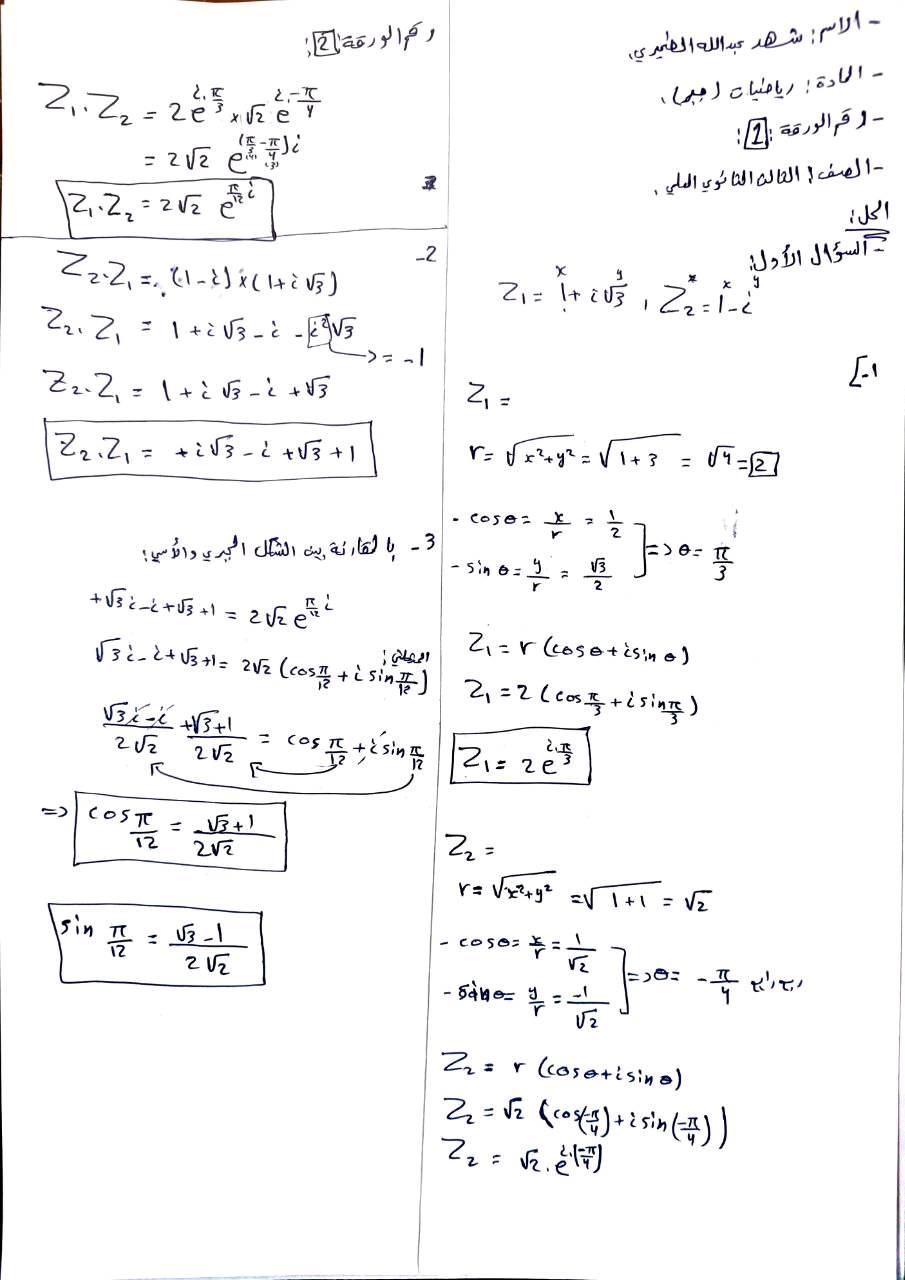 - الاسم: شهد عبدالله الطميري.
- المادة: رياضيات (جبر).
- رقم الورقة: 1:
- الصف: الثالث الثانوي العلمي.
الحل:
- السؤال الأول:
Z₁ = 1 + i√3 , Z₂ = 1 - i
x y x y
[-1
Z₁ =
r = √x²+y² = √1+3 = √4 = 2
- cosθ = x/r = 1/2
- sinθ = y/r = √3/2
=> θ = π/3
Z₁ = r (cosθ + i sinθ)
Z₁ = 2 (cos π/3 + i sin π/3)
Z₁ = 2e^(i.π/3)
Z₂ =
r = √x²+y² = √1+1 = √2
- cosθ = x/r = 1/√2
- sinθ = y/r = -1/√2
=> θ = -π/4
Z₂ = r (cosθ + i sinθ)
Z₂ = √2 (cos(-π/4) + i sin(-π/4))
Z₂ = √2 . e^(i.(-π/4))
رقم الورقة: 2:
Z₁.Z₂ = 2e^(i.π/3) × √2 e^(i.-π/4)
= 2√2 e^((π/3 - π/4)i)
(4) (3)
Z₁.Z₂ = 2√2 e^(π/12 i)
-2
Z₂.Z₁ = (1-i) × (1+i√3)
Z₂.Z₁ = 1 + i√3 - i - i²√3
=> = -1
Z₂.Z₁ = 1 + i√3 - i + √3
Z₂.Z₁ = +i√3 - i + √3 + 1
3- بالمقارنة بين الشكل الجبري والأسي:
+√3 i - i + √3 + 1 = 2√2 e^(π/12 i)
√3 i - i + √3 + 1 = 2√2 (cos π/12 + i sin π/12)
√3 i - i/2√2 + √3 + 1/2√2 = cos π/12 + i sin π/12
=> cos π/12 = √3+1/2√2
sin π/12 = √3-1/2√2